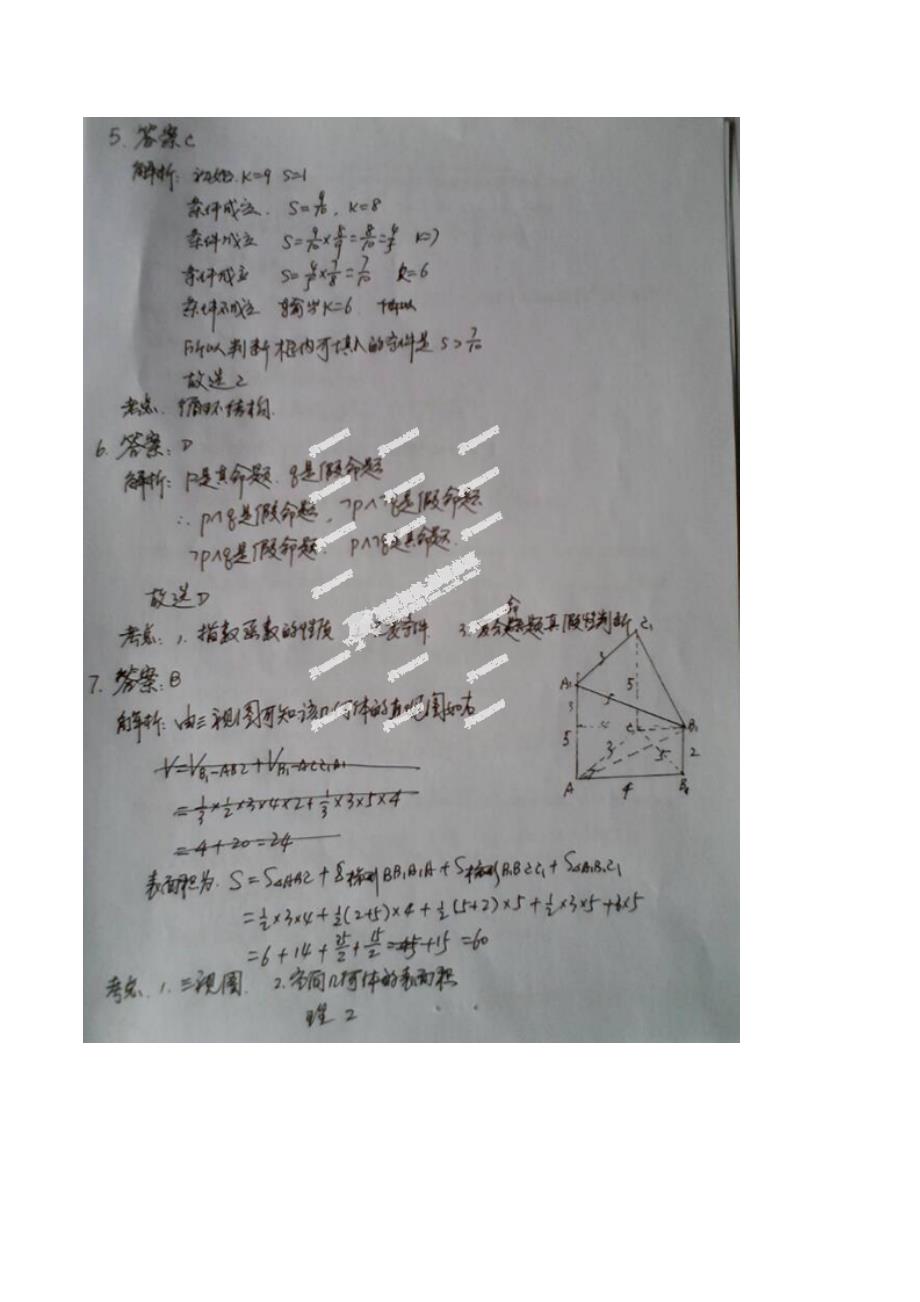 5. 答案C
解析: 初始 K=9 S=1
条件成立. S=9/10, K=8
条件成立 S=9/10×8/9=8/10=4/5 K=7
条件成立 S=4/5×7/8=7/10 K=6
条件不成立 输出K=6
所以判断框内可填入的条件是 S>7/10
故选C
考点. 循环结构.
6. 答案: D
解析: P是真命题. q是假命题
∴ p∧q是假命题, ¬p∧¬q是假命题
¬p∧q是假命题. p∧¬q是真命题.
故选D
考点: 1. 指数函数的性质 3. 命题真假的判断
7. 答案: B
解析: 由三视图可知该几何体的直观图如右
V=V_{B₁-ABC}+V_{B₁-ACC₁A₁}
=1/3×1/2×3×4×2+1/3×3×5×4
=4+20=24
表面积为. S=S△ABC+S梯形BB₁A₁A+S梯形B₁BCC₁+S△A₁B₁C₁
=1/2×3×4+1/2(2+5)×4+1/2(5+2)×5+1/2×3×5+3×5
=6+14+35/2+15/2=45+15=60
考点. 1. 三视图. 2. 空间几何体的表面积
理 2
C₁
A₁
3
5
5
3
5
C
B₁
3
5
2
A
4
B